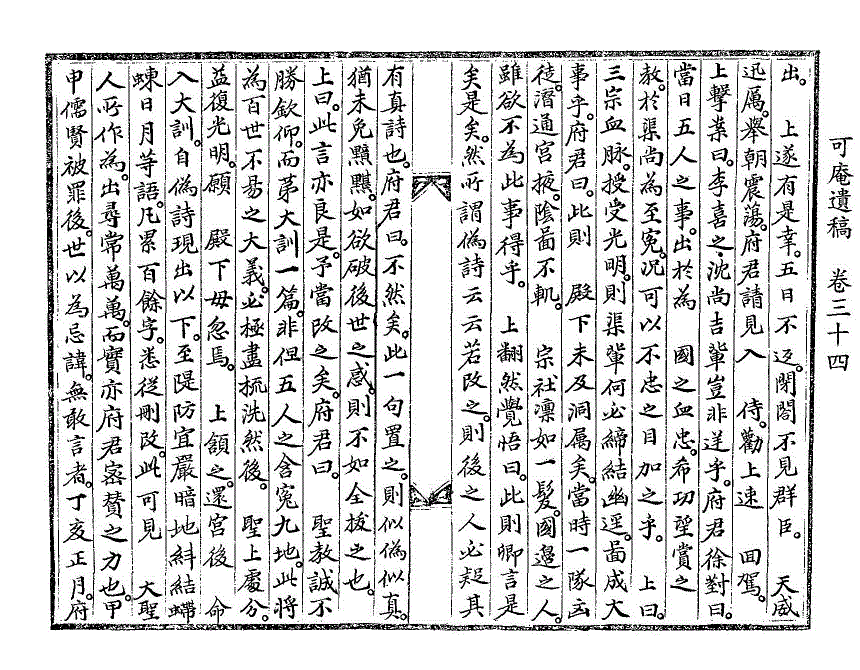 可庵遺稿 卷三十四
出。 上遂有是幸。五日不返。閉閤不見群臣。 天威
迅厲。舉朝震蕩。府君請見入 侍。勸上速 回駕。
上擊案曰。李喜之沈尙吉輩豈非逆乎。府君徐對曰。
當日五人之事。出於爲 國之血忠。希功望賞之
敎。於渠尙爲至寃。況可以不忠之目加之乎。 上曰。
三宗血脉。授受光明。則渠輩何必締結幽逕。啚成大
事乎。府君曰。此則 殿下未及洞屬矣。當時一隊凶
徒。潛通宮掖。陰啚不軌。 宗社凛如一髮。國邊之人。
雖欲不爲此事得乎。 上翻然覺悟曰。此則卿言是
矣是矣。然所謂僞詩云云若改之。則後之人必疑其
有眞詩也。府君曰。不然矣。此一句置之。則似僞似眞。
猶未免黯黮。如欲破後世之惑。則不如全拔之也。
上曰。此言亦良是。予當改之矣。府君曰。 聖敎誠不
勝欽仰。而第大訓一篇。非但五人之含寃九地。此將
爲百世不易之大義。必極盡梳洗然後。 聖上處分。
益復光明。願 殿下毋忽焉。 上頷之。還宮後 命
入大訓。自僞詩現出以下。至隄防宜嚴暗地糾結蝃
蝀日月等語。凡累百餘字。悉從刪改。此可見 大聖
人所作爲。出尋常萬萬。而實亦府君密贊之力也。甲
申儒賢被罪後。世以爲忌諱。無敢言者。丁亥正月。府